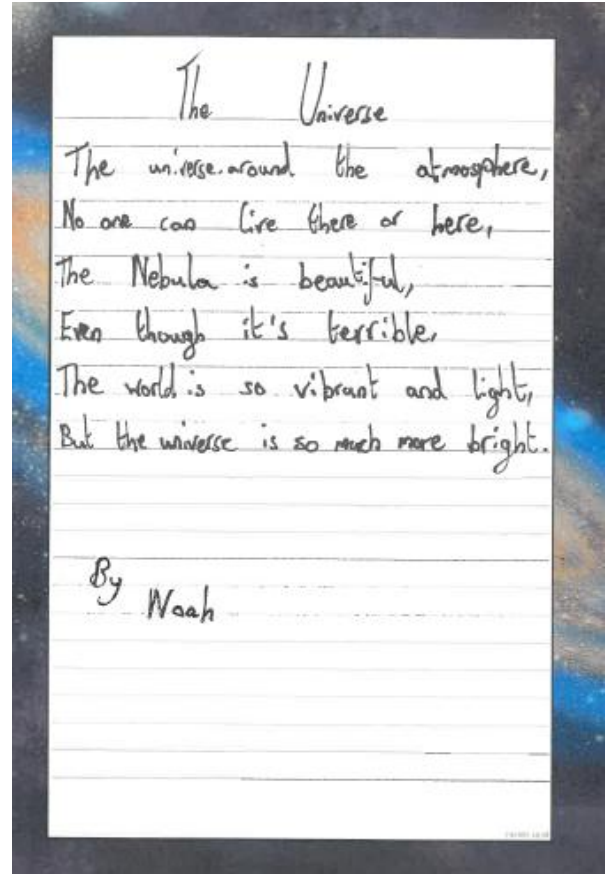 The Universe
The universe around the atmosphere,
No one can live there or here,
The Nebula is beautiful,
Even though it's terrible,
The world is so vibrant and light,
But the universe is so much more bright.
By
Noah